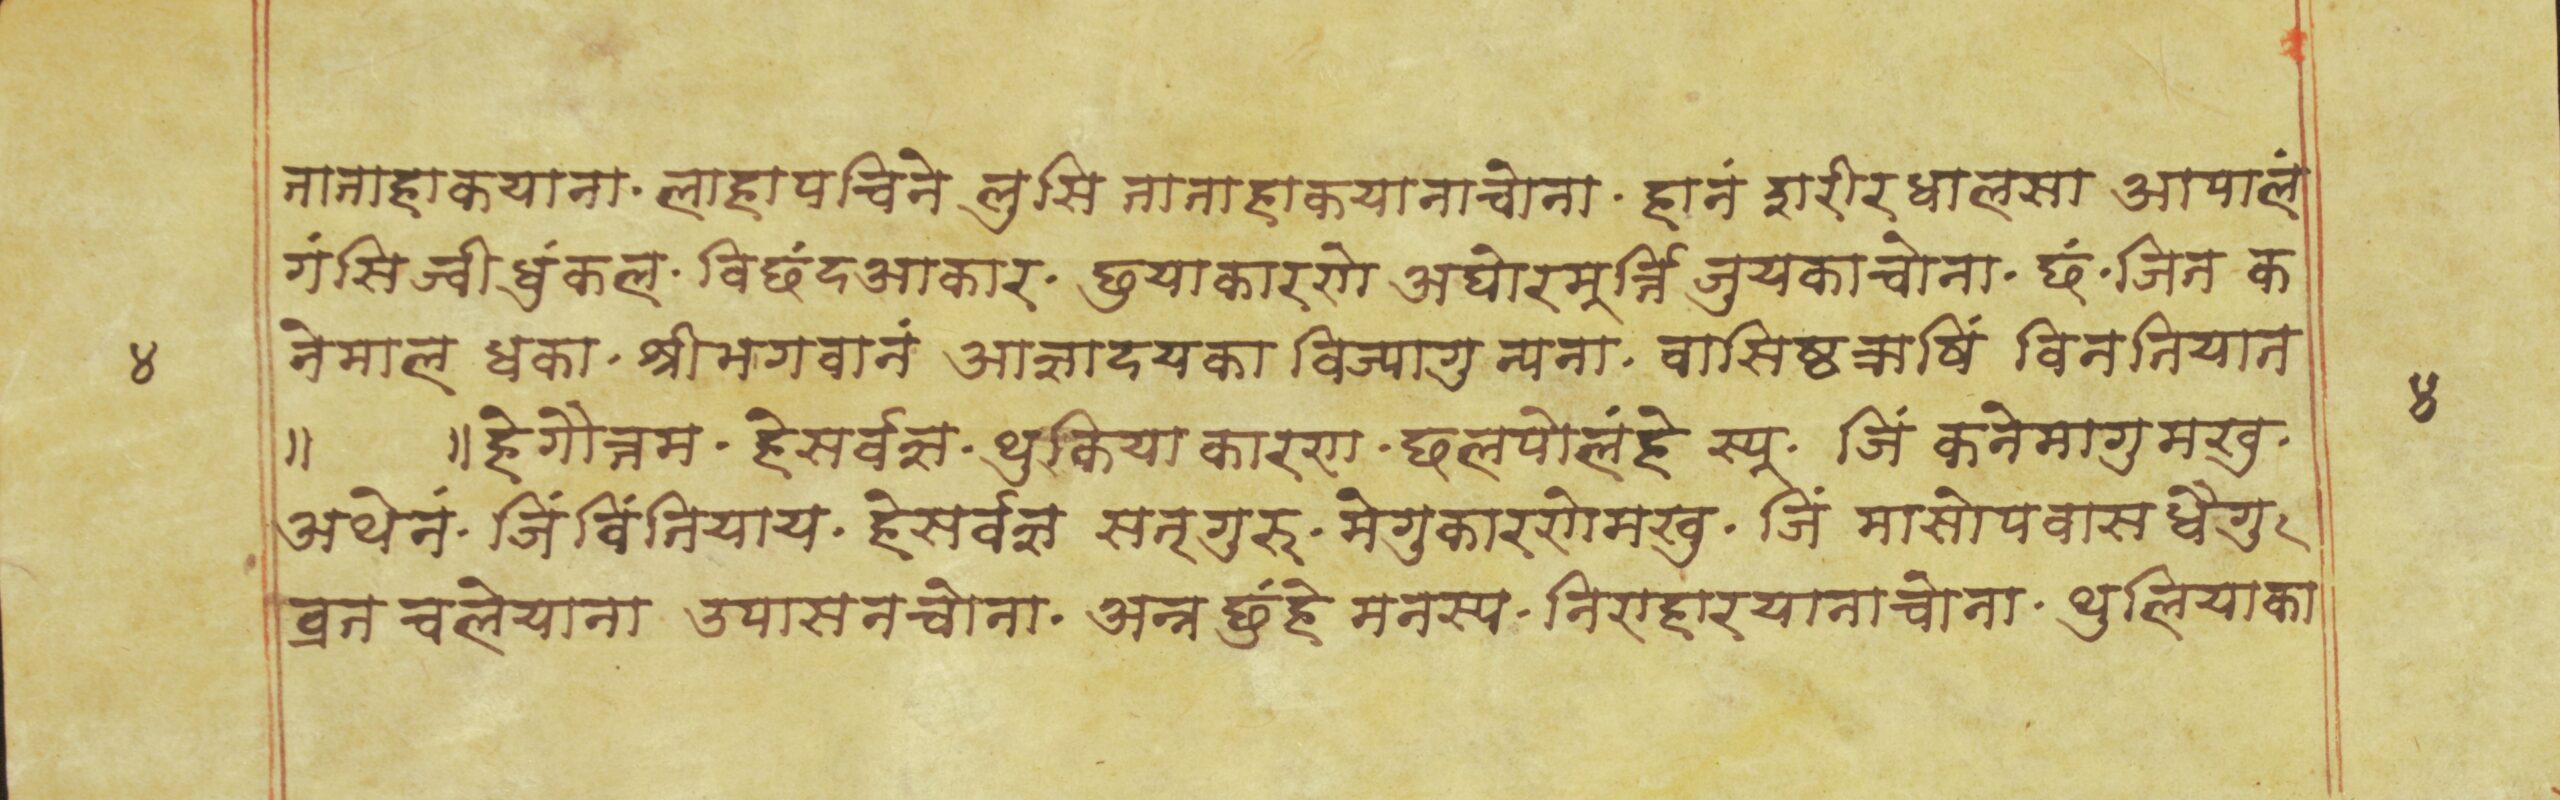 ताताहाकयाना· लाहापचिने लुसि ताताहाकयानाचोना· हानं शरीरधालसा आपालं
गंसिज्वीधुंकल· विछंदआकार· छुयाकारणे अघोरमूर्त्ति जुयकाचोना· छं· जित क
नेमाल धका· श्रीभगवानं आज्ञादयका विज्यागु न्यना· वासिष्ठऋषिं विनतियात
॥ ॥हेगौत्तम· हेसर्वज्ञ· थुकियाकारण· छलपोलंहे स्यू· जिं कनेमागुमखु·
अथेनं· जिं विंतियाय· हेसर्वज्ञ सत्गुरु· मेगुकारणेमखु· जिं मासोपवासधैगु
व्रत चलेयाना उपासनचोना· अन्न छुंहे मनस्य· निराहारयानाचोना· थुलियाका
४
४